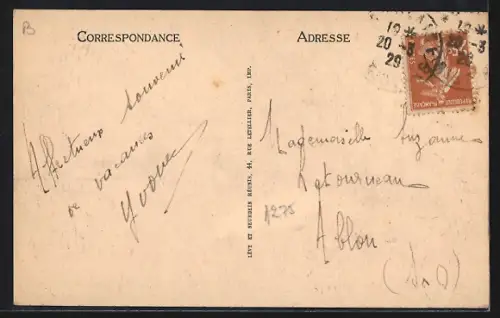 B
CORRESPONDANCE
ADRESSE
19* 19*
20 -3 -3
29 29
Affectueux souvenir
de vacances
Yvonne
LÉVY ET NEURDEIN RÉUNIS, 44, RUE LETELLIER, PARIS, IMP.
Mademoiselle Suzanne
Letourneau
Ablon
(S&O)